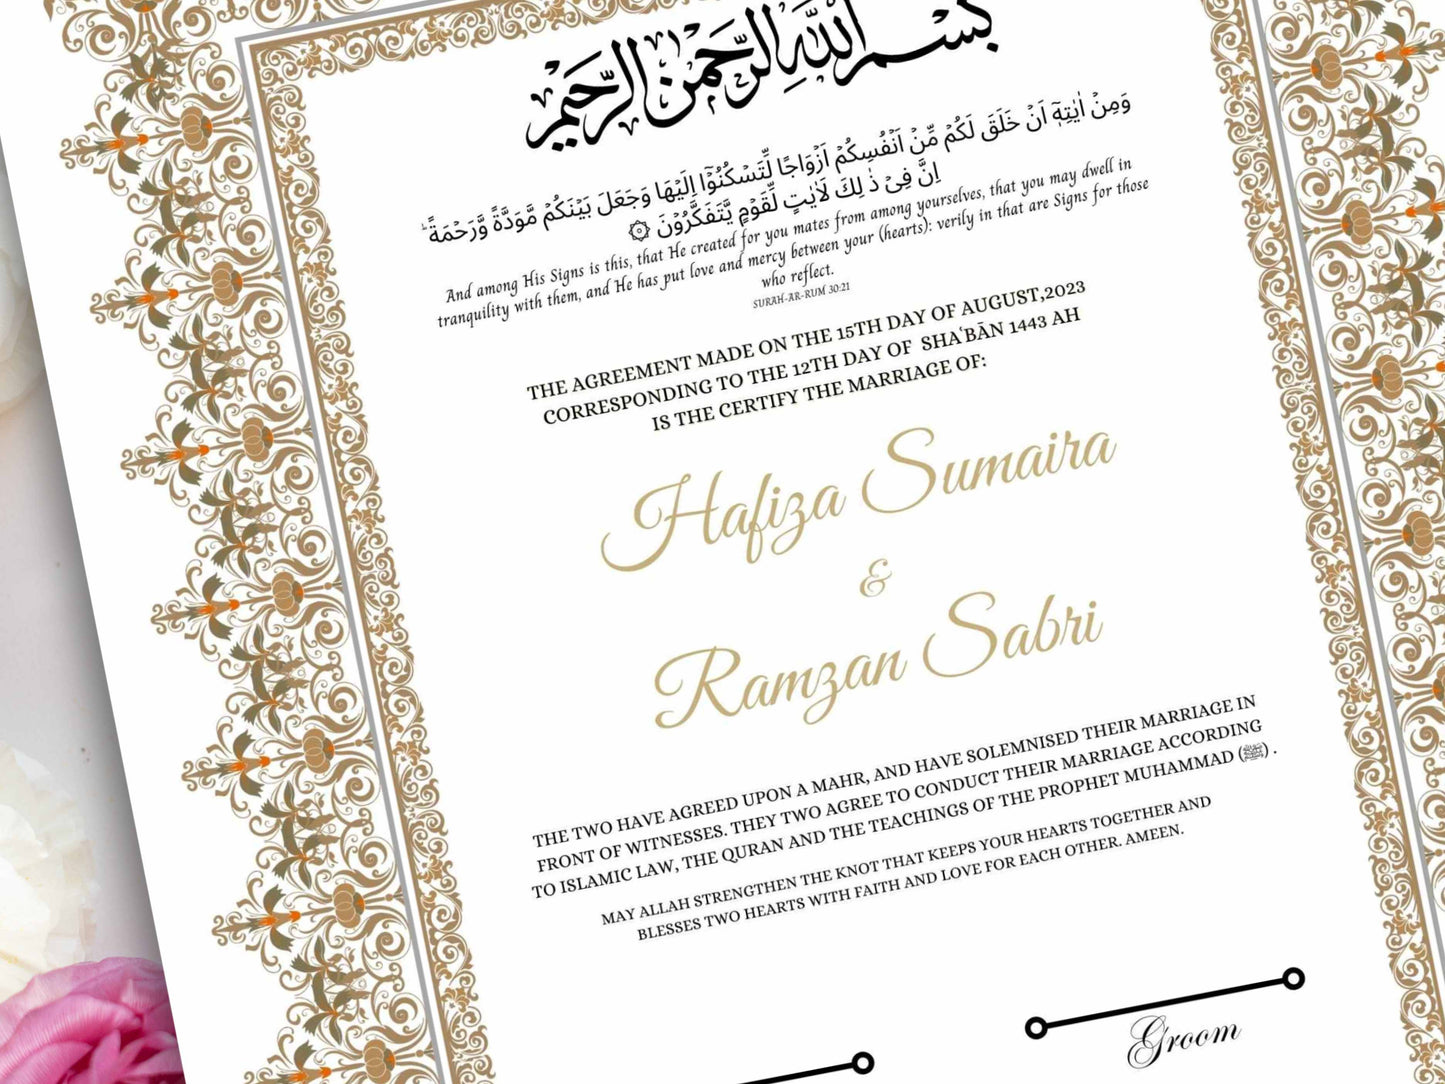 بِسْمِ اللهِ الرَّحْمٰنِ الرَّحِيْمِ
وَمِنْ اٰيٰتِهٖٓ اَنْ خَلَقَ لَكُمْ مِّنْ اَنْفُسِكُمْ اَزْوَاجًا لِّتَسْكُنُوْٓا اِلَيْهَا وَجَعَلَ بَيْنَكُمْ مَّوَدَّةً وَّرَحْمَةً ؕ
اِنَّ فِىْ ذٰ لِكَ لَاٰيٰتٍ لِّقَوْمٍ يَّتَفَكَّرُوْنَ ۞
And among His Signs is this, that He created for you mates from among yourselves, that you may dwell in
tranquility with them, and He has put love and mercy between your (hearts): verily in that are Signs for those
who reflect.
SURAH-AR-RUM 30:21
THE AGREEMENT MADE ON THE 15TH DAY OF AUGUST,2023
CORRESPONDING TO THE 12TH DAY OF SHAʿBĀN 1443 AH
IS THE CERTIFY THE MARRIAGE OF:
Hafiza Sumaira
&
Ramzan Sabri
THE TWO HAVE AGREED UPON A MAHR, AND HAVE SOLEMNISED THEIR MARRIAGE IN
FRONT OF WITNESSES. THEY TWO AGREE TO CONDUCT THEIR MARRIAGE ACCORDING
TO ISLAMIC LAW, THE QURAN AND THE TEACHINGS OF THE PROPHET MUHAMMAD (ﷺ) .
MAY ALLAH STRENGTHEN THE KNOT THAT KEEPS YOUR HEARTS TOGETHER AND
BLESSES TWO HEARTS WITH FAITH AND LOVE FOR EACH OTHER. AMEEN.
Groom